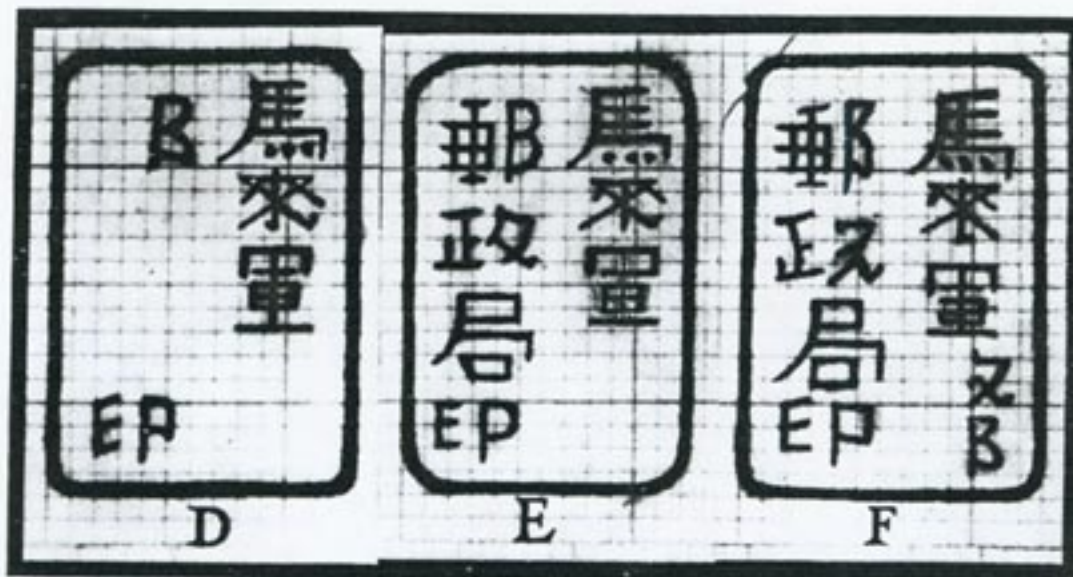 馬來軍
印
D
馬來軍
郵政局印
E
馬來軍
郵政局印
F